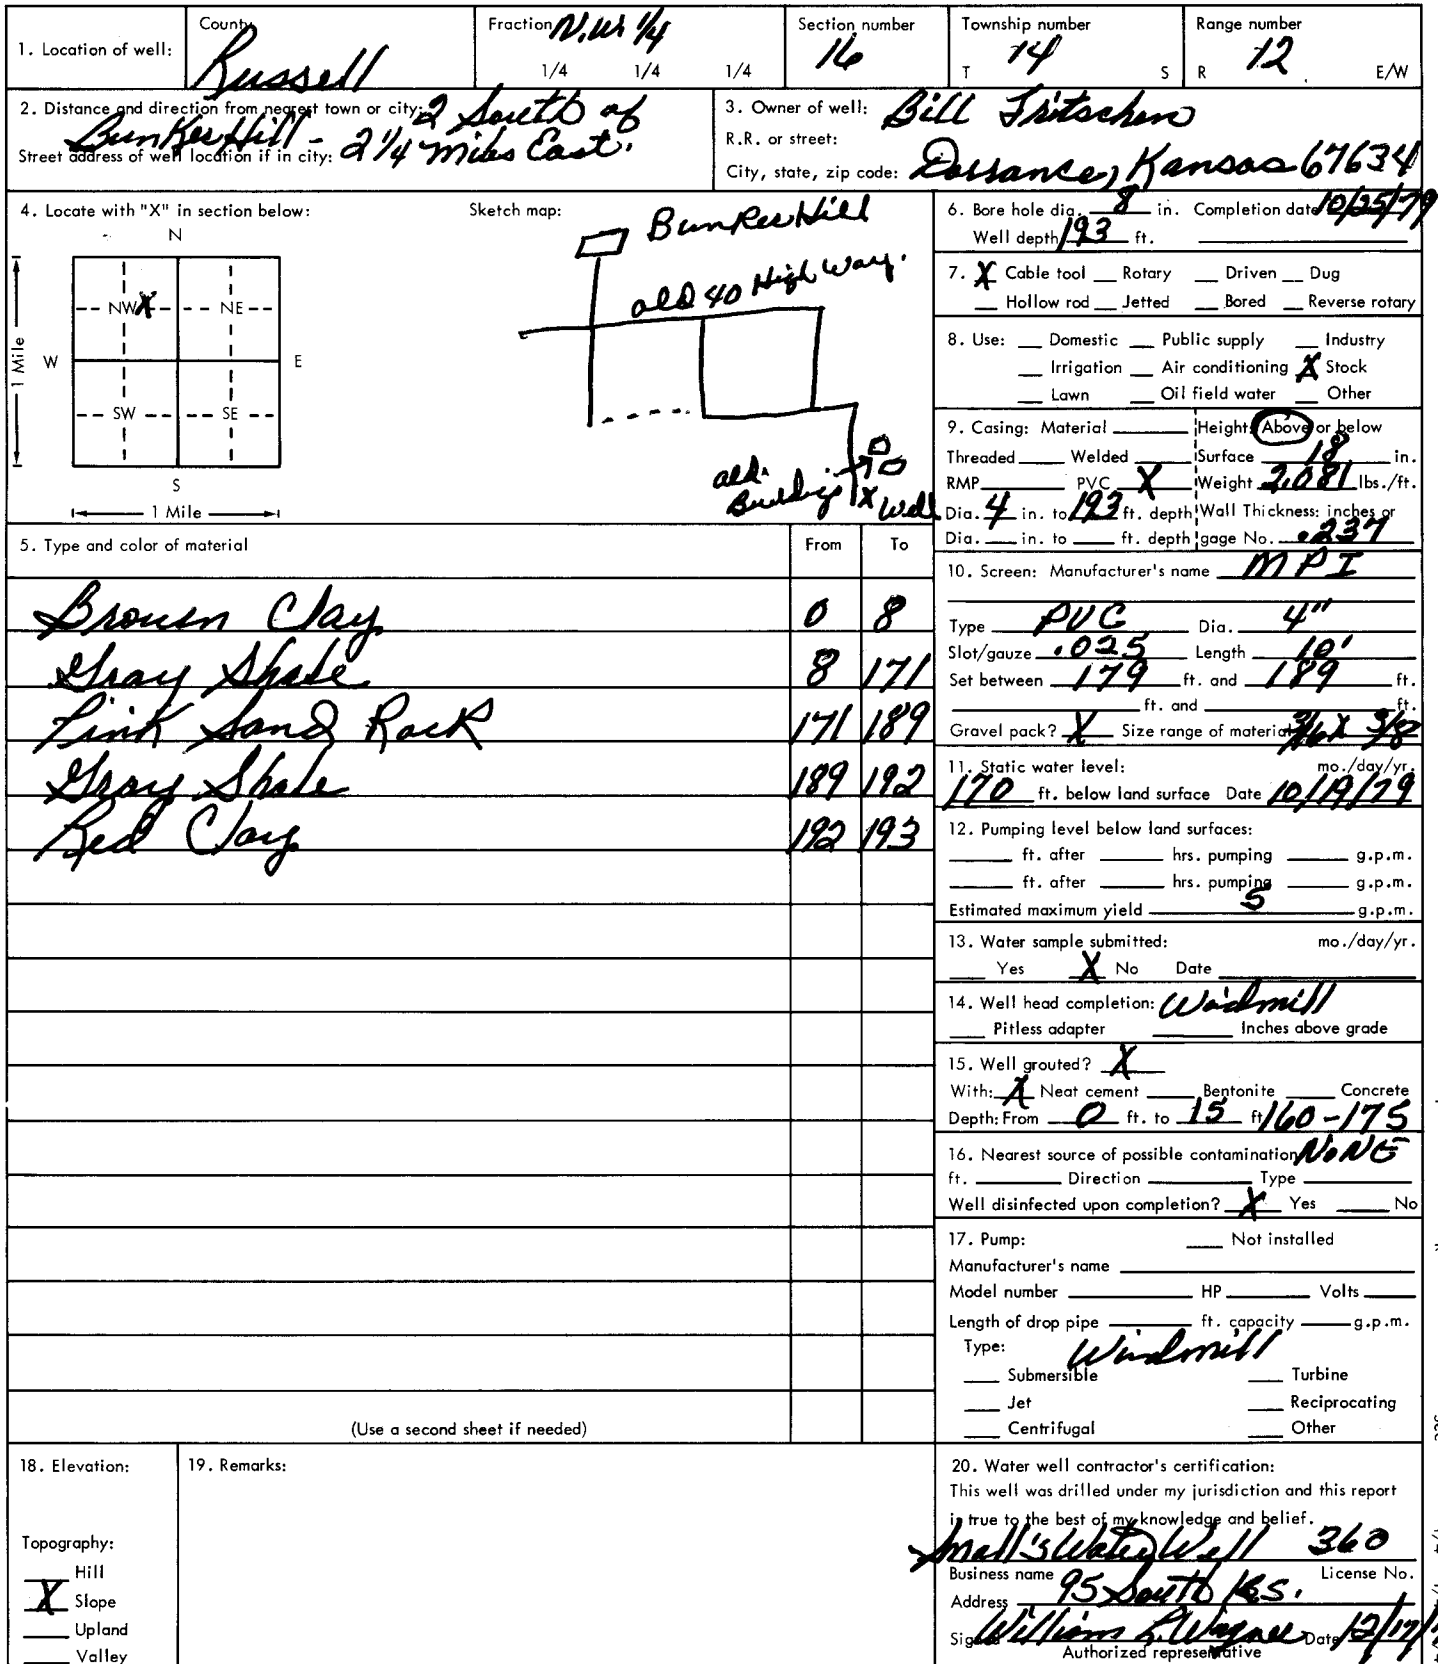 1. Location of well: County Russell Fraction N.W 1/4 1/4 1/4 1/4 Section number 16 Township number T 14 S Range number R 12 E/W
2. Distance and direction from nearest town or city: 2 South of
Bunker Hill - 2 1/4 Miles East.
Street address of well location if in city:
3. Owner of well: Bill Fritschen
R.R. or street:
City, state, zip code: Dorrance, Kansas 67634
4. Locate with "X" in section below:
N
NW X NE
W E
SW SE
S
1 Mile
1 Mile
Sketch map:
Bunker Hill
old 40 High Way.
old.
Buildings
X Well
5. Type and color of material From To
Brown Clay 0 8
Gray Shale 8 171
Pink Sand Rock 171 189
Gray Shale 189 192
Red Clay 192 193
(Use a second sheet if needed)
6. Bore hole dia. 8 in. Completion date 10/25/79
Well depth 193 ft.
7. X Cable tool __ Rotary __ Driven __ Dug
__ Hollow rod __ Jetted __ Bored __ Reverse rotary
8. Use: __ Domestic __ Public supply __ Industry
__ Irrigation __ Air conditioning X Stock
__ Lawn __ Oil field water __ Other
9. Casing: Material ____ Height: Above or below
Threaded ____ Welded ____ Surface 18 in.
RMP ____ PVC X Weight 2.081 lbs./ft.
Dia. 4 in. to 193 ft. depth Wall Thickness: inches or
Dia. __ in. to __ ft. depth gage No. .237
10. Screen: Manufacturer's name MPI
Type PVC Dia. 4"
Slot/gauze .025 Length 10'
Set between 179 ft. and 189 ft.
____ ft. and ____ ft.
Gravel pack? X Size range of material 3/16 X 3/8
11. Static water level: mo./day/yr.
170 ft. below land surface Date 10/19/79
12. Pumping level below land surfaces:
____ ft. after ____ hrs. pumping ____ g.p.m.
____ ft. after ____ hrs. pumping ____ g.p.m.
Estimated maximum yield 5 g.p.m.
13. Water sample submitted: mo./day/yr.
__ Yes X No Date ____
14. Well head completion: Windmill
__ Pitless adapter ____ Inches above grade
15. Well grouted? X
With: X Neat cement ____ Bentonite ____ Concrete
Depth: From 0 ft. to 15 ft 160-175
16. Nearest source of possible contamination NONE
ft. ____ Direction ____ Type ____
Well disinfected upon completion? X Yes ____ No
17. Pump: __ Not installed
Manufacturer's name ____
Model number ____ HP ____ Volts ____
Length of drop pipe ____ ft. capacity ____ g.p.m.
Type: Windmill
__ Submersible __ Turbine
__ Jet __ Reciprocating
__ Centrifugal __ Other
18. Elevation:
Topography:
__ Hill
X Slope
__ Upland
__ Valley
19. Remarks:
20. Water well contractor's certification:
This well was drilled under my jurisdiction and this report
is true to the best of my knowledge and belief.
Small's Water Well 360
Business name License No.
Address 95 South Ks.
Signed William L. Wagner Date 12/17/
Authorized representative